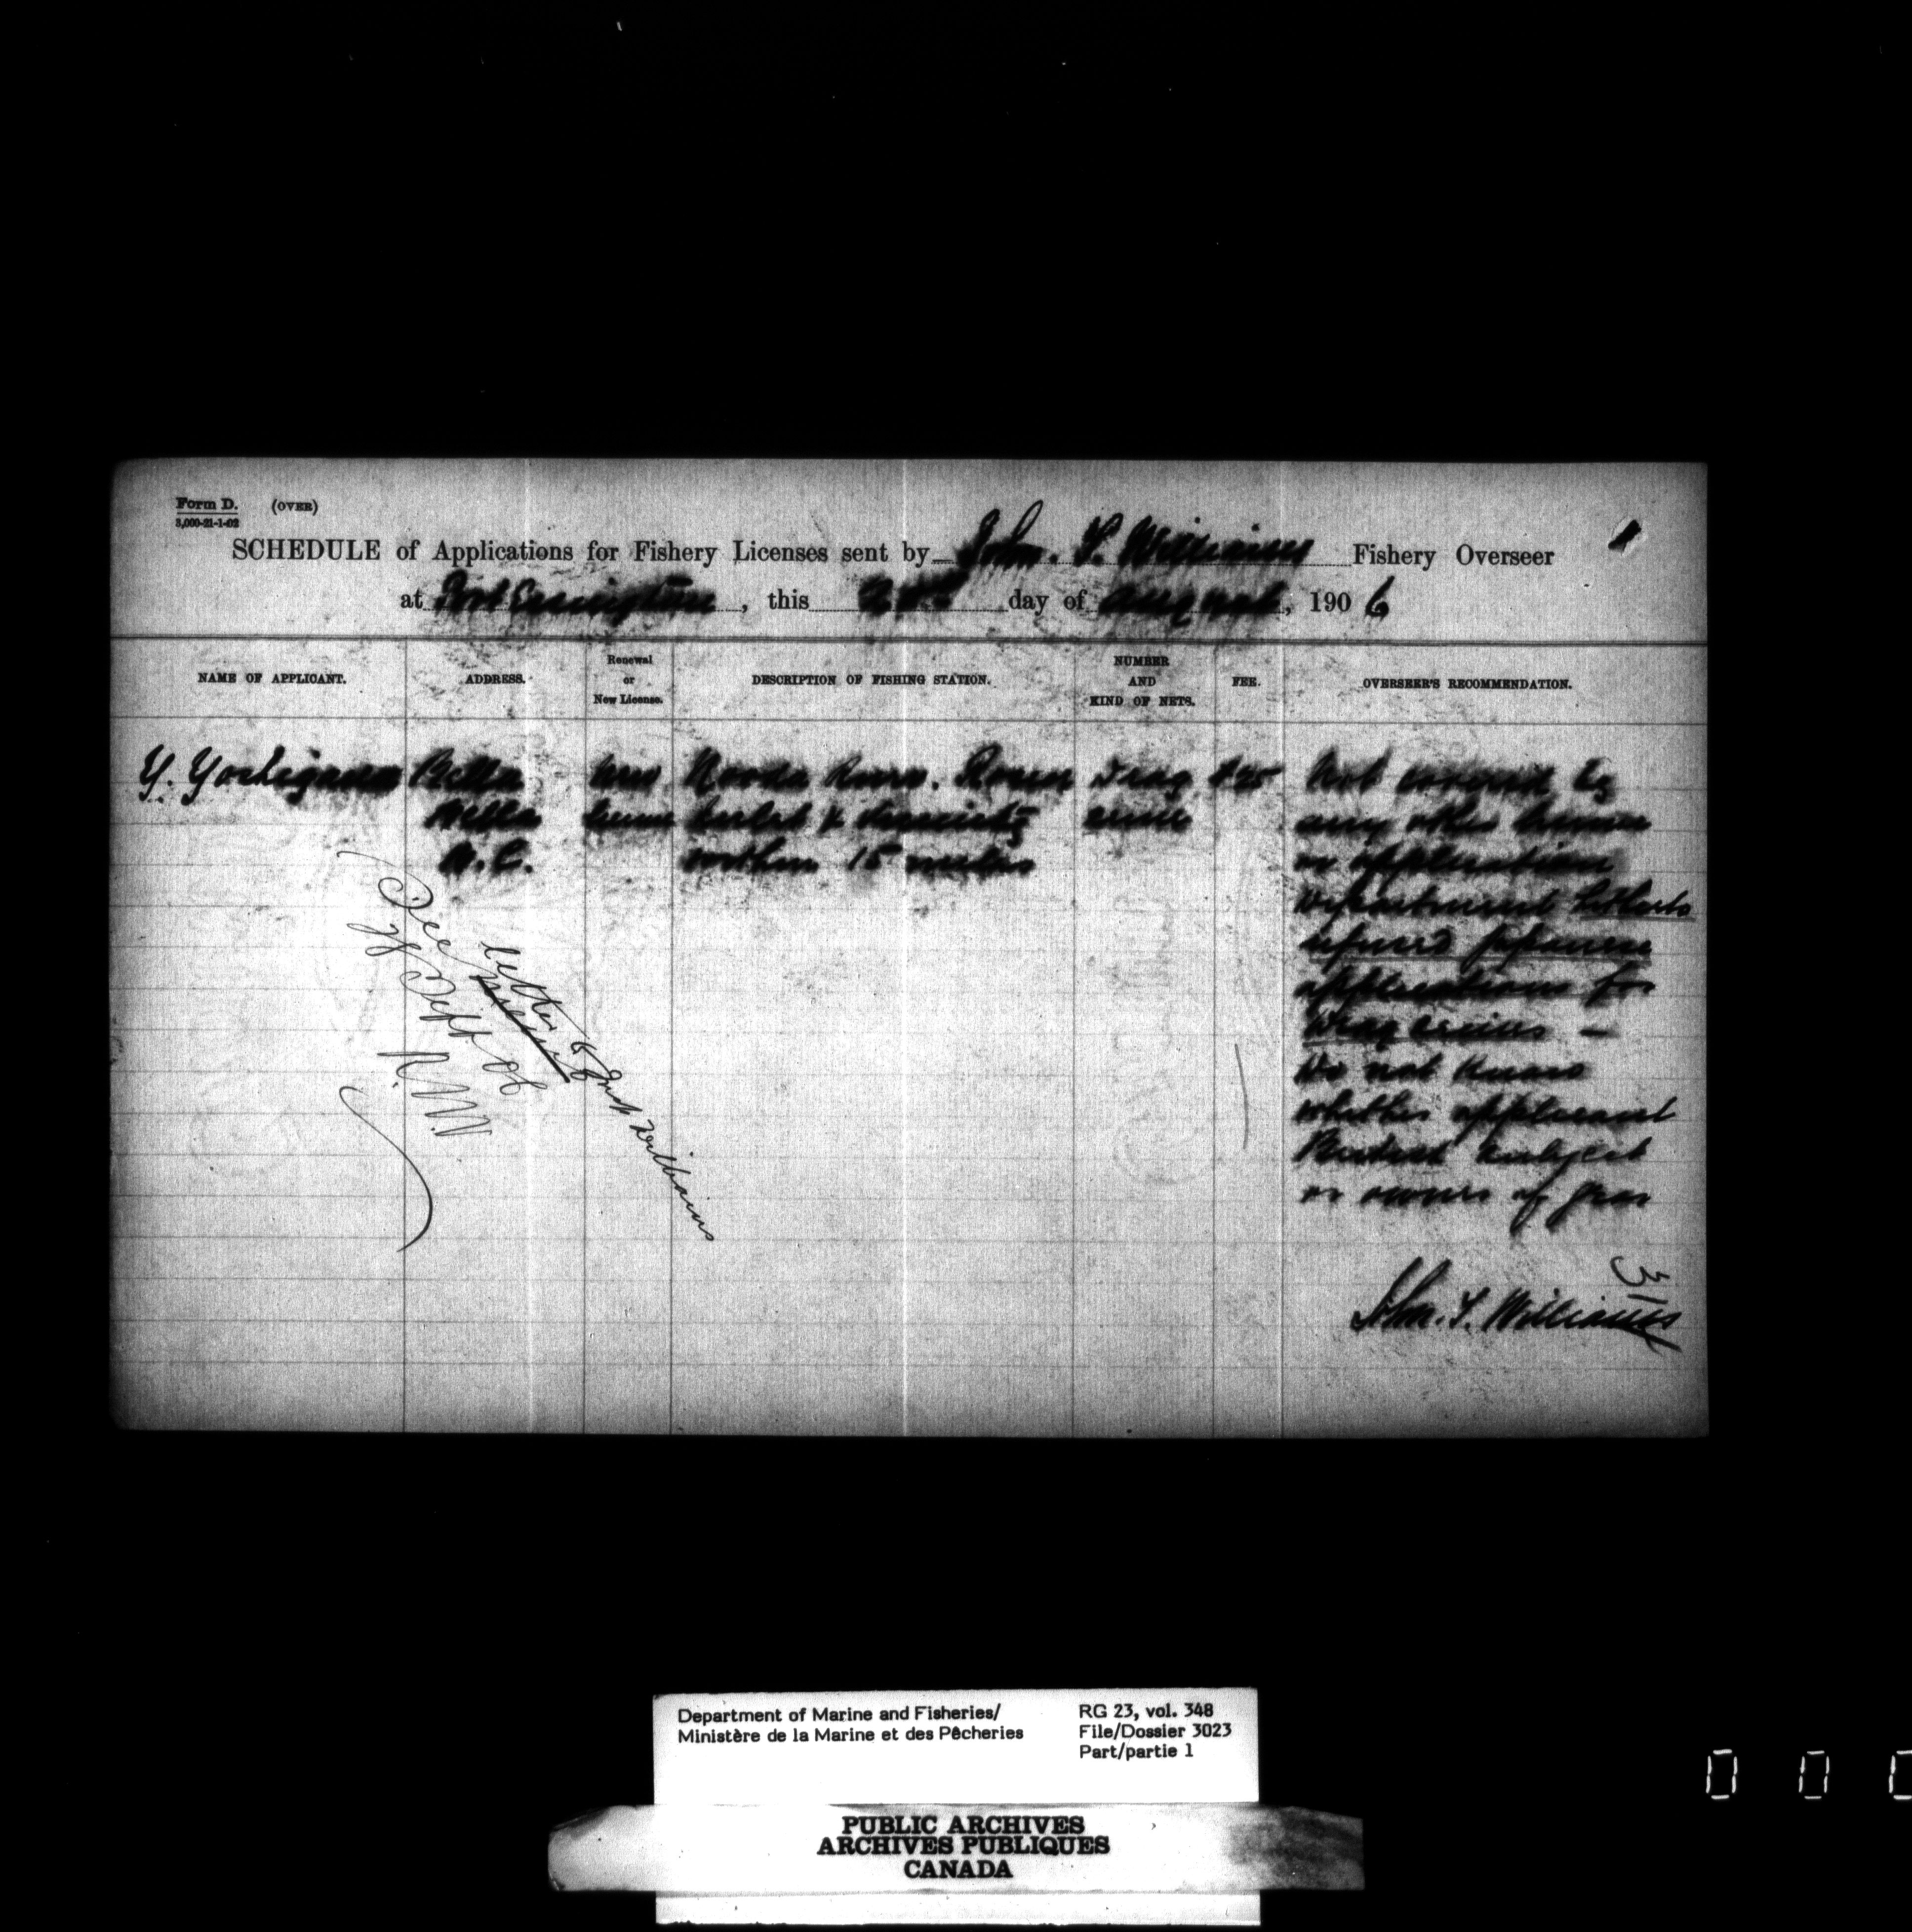 Form D. (OVER)
3,000-21-1-02
SCHEDULE of Applications for Fishery Licenses sent by John. T. Williams Fishery Overseer
at Port Essington, this day of August, 1906
NAME OF APPLICANT. ADDRESS. Renewal or New License. DESCRIPTION OF FISHING STATION. NUMBER AND KIND OF NETS. FEE. OVERSEER'S RECOMMENDATION.
Y. Bella New River. Drag $25 Not covered by
Bella license Inlet & vicinity seine any other license
B.C. within 15 miles or application
Department hitherto
refused Japanese
applications for
Drag seines —
Do not know
whether applicant
British subject
or owner of gear
letter to Williams
31
John. T. Williams
Department of Marine and Fisheries/
Ministère de la Marine et des Pêcheries
RG 23, vol. 348
File/Dossier 3023
Part/partie 1
PUBLIC ARCHIVES
ARCHIVES PUBLIQUES
CANADA
0 0